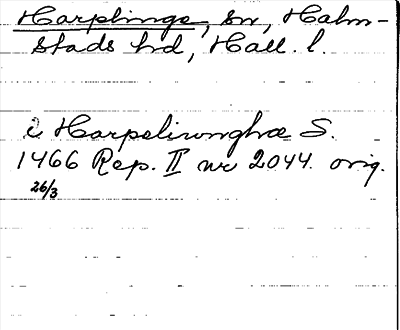 Harplinge, sn, Halm-
stads hd, Hall. l.
i Harpelinunghæ S.
1466 Rep. II nr 2044. orig.
26/3